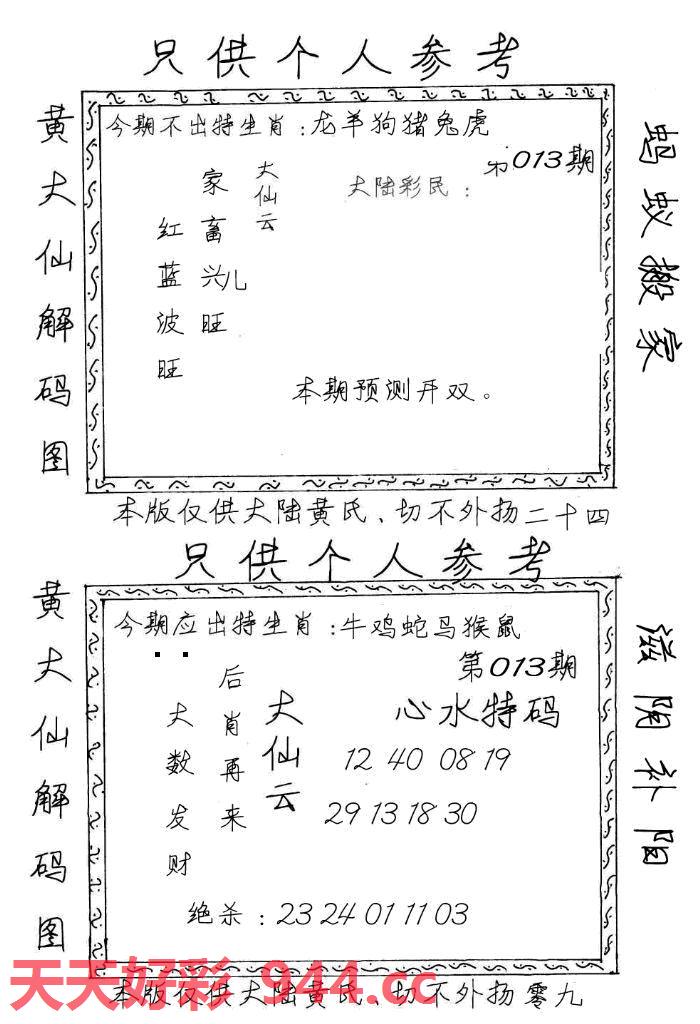 只供个人参考
黄大仙解码图
今期不出特生肖：龙羊狗猪兔虎
013期
大陆彩民：
大仙云
家畜兴旺
儿
红蓝波旺
本期预测开双。
蚂蚁搬家
本版仅供大陆黄氏、切不外扬二十四
只供个人参考
黄大仙解码图
今期应出特生肖：牛鸡蛇马猴鼠
第013期
心水特码
大仙云
后肖再来
大数发财
12 40 08 19
29 13 18 30
绝杀：23 24 01 11 03
滋阴补阳
天天好彩 944.cc
本版仅供大陆黄氏、切不外扬零九